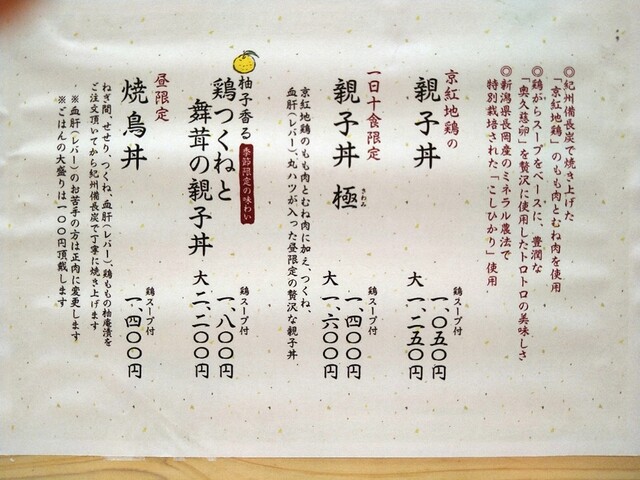 ◎紀州備長炭で焼き上げた
「京紅地鶏」のもも肉とむね肉を使用
◎鶏がらスープをベースに、豊潤な
「奥久慈卵」を贅沢に使用したトロトロの美味しさ
◎新潟県長岡産のミネラル農法で
特別栽培された「こしひかり」使用
京紅地鶏の
親子丼
鶏スープ付
一、〇五〇円
大 一、二五〇円
一日十食限定
親子丼 極
きわん
鶏スープ付
一、四〇〇円
大 一、六〇〇円
京紅地鶏のもも肉とむね肉に加え、つくね、
血肝(レバー)、丸ハツが入った昼限定の贅沢な親子丼
柚子香る
季節限定の味わい
鶏つくねと
舞茸の親子丼
鶏スープ付
一、八〇〇円
大 二、二〇〇円
昼限定
焼鳥丼
鶏スープ付
一、四〇〇円
ねぎ間、せせり、つくね、血肝(レバー)、鶏ももの柚庵漬を
ご注文頂いてから紀州備長炭で丁寧に焼き上げます
※血肝(レバー)のお苦手の方は正肉に変更します
※ごはんの大盛りは一〇〇円頂戴します